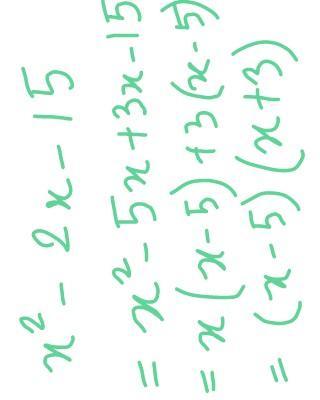 x² - 2x - 15
= x² - 5x + 3x - 15
= x(x-5) + 3(x-5)
= (x-5)(x+3)